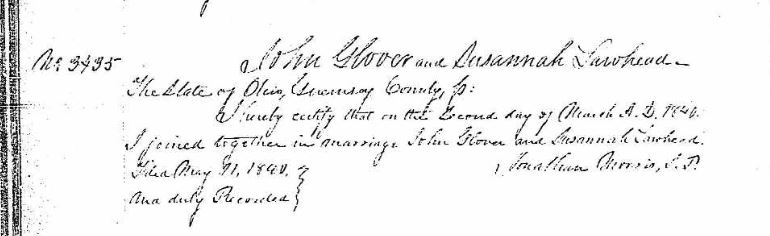 No 3435 John Glover and Susannah Lawhead
The State of Ohio, Guernsey County, ss:
I hereby certify that on the Second day of March A.D. 1840.
I joined together in marriage John Glover and Susannah Lawhead.
Filed May 11, 1840. } Jonathan Morris, J.P.
And duly Recorded }